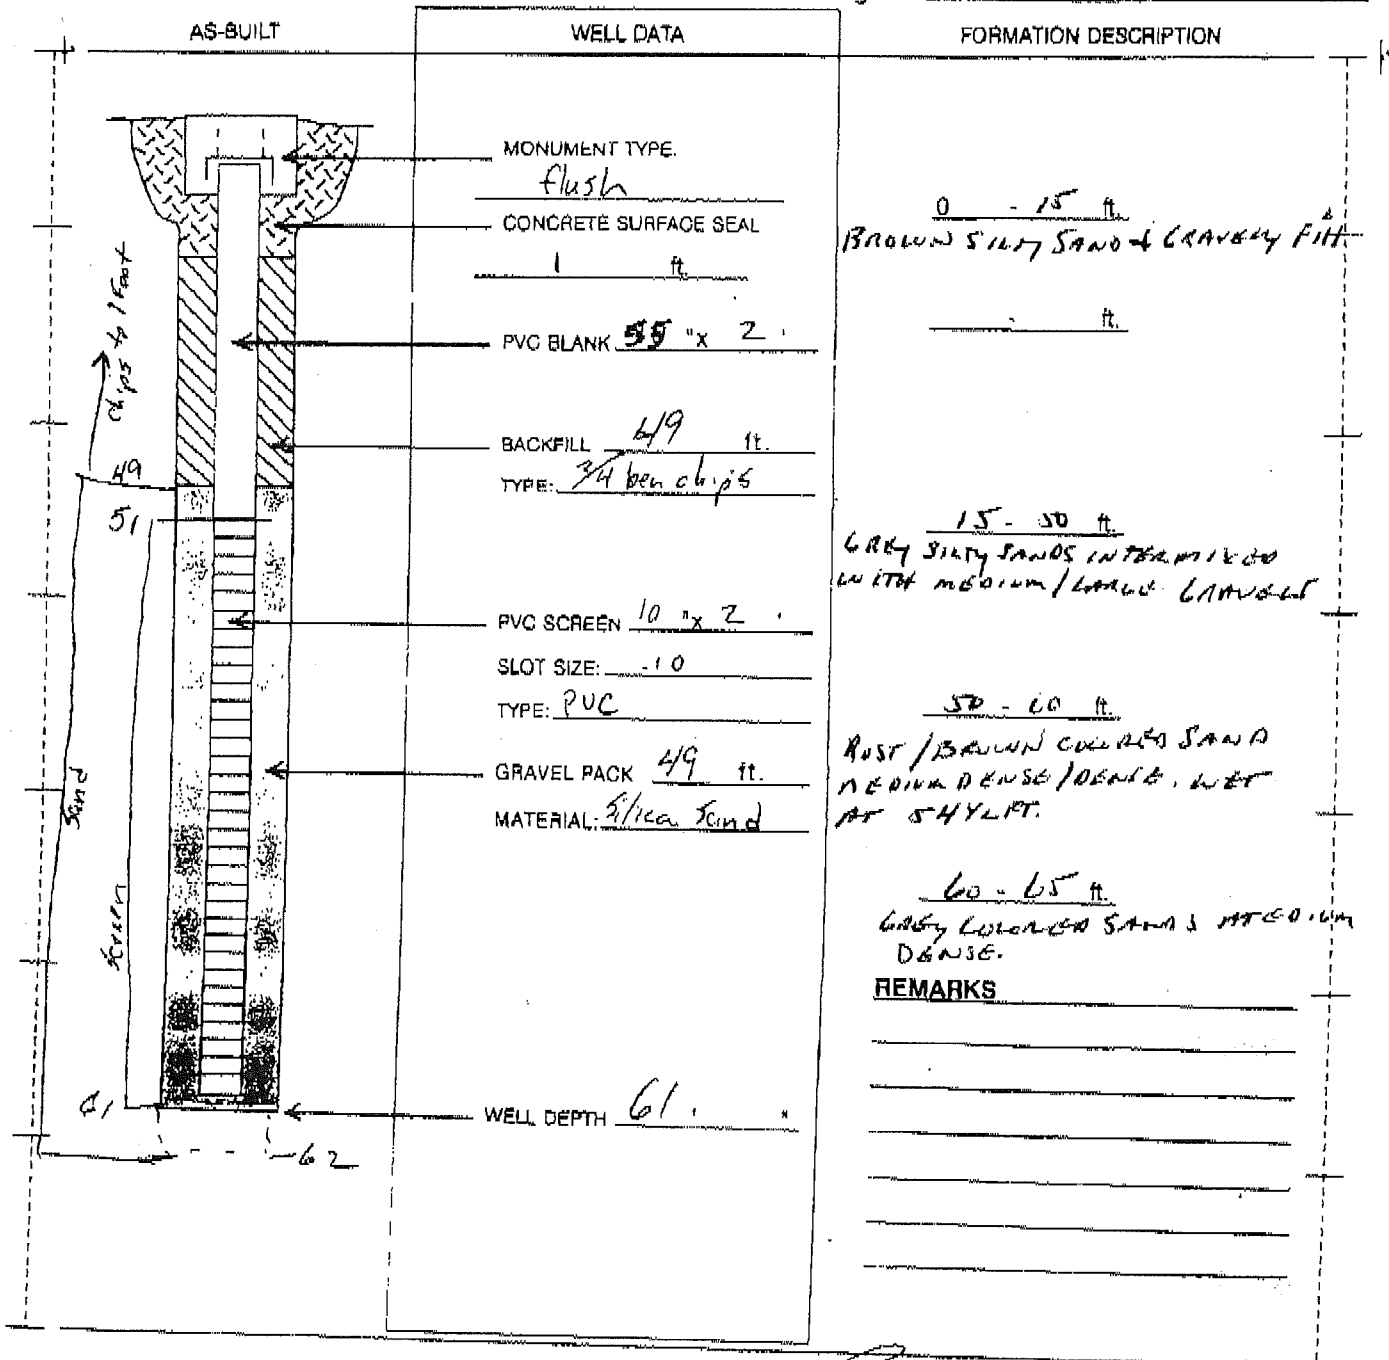 AS-BUILT
WELL DATA
FORMATION DESCRIPTION
MONUMENT TYPE.
flush
CONCRETE SURFACE SEAL
1 ft.
PVC BLANK "x 2 '
BACKFILL 49 ft.
TYPE: 3/4 ben chips
PVC SCREEN 10 "x 2 '
SLOT SIZE: .10
TYPE: PVC
GRAVEL PACK 49 ft.
MATERIAL: Silica Sand
WELL DEPTH 61 ' "
chips to 1 Foot
49
51
Sand
Screen
61
62
0 - 15 ft.
BROWN SILTY SAND & GRAVELY Fill
- ft.
15 - 50 ft.
GREY SILTY SANDS INTERMIXED
WITH MEDIUM / LARGE GRAVELS
50 - 60 ft.
RUST / BROWN COLORED SAND
MEDIUM DENSE / DENSE. WET
AT FT.
60 - 65 ft.
GREY COLORED SANDS MEDIUM
DENSE.
REMARKS